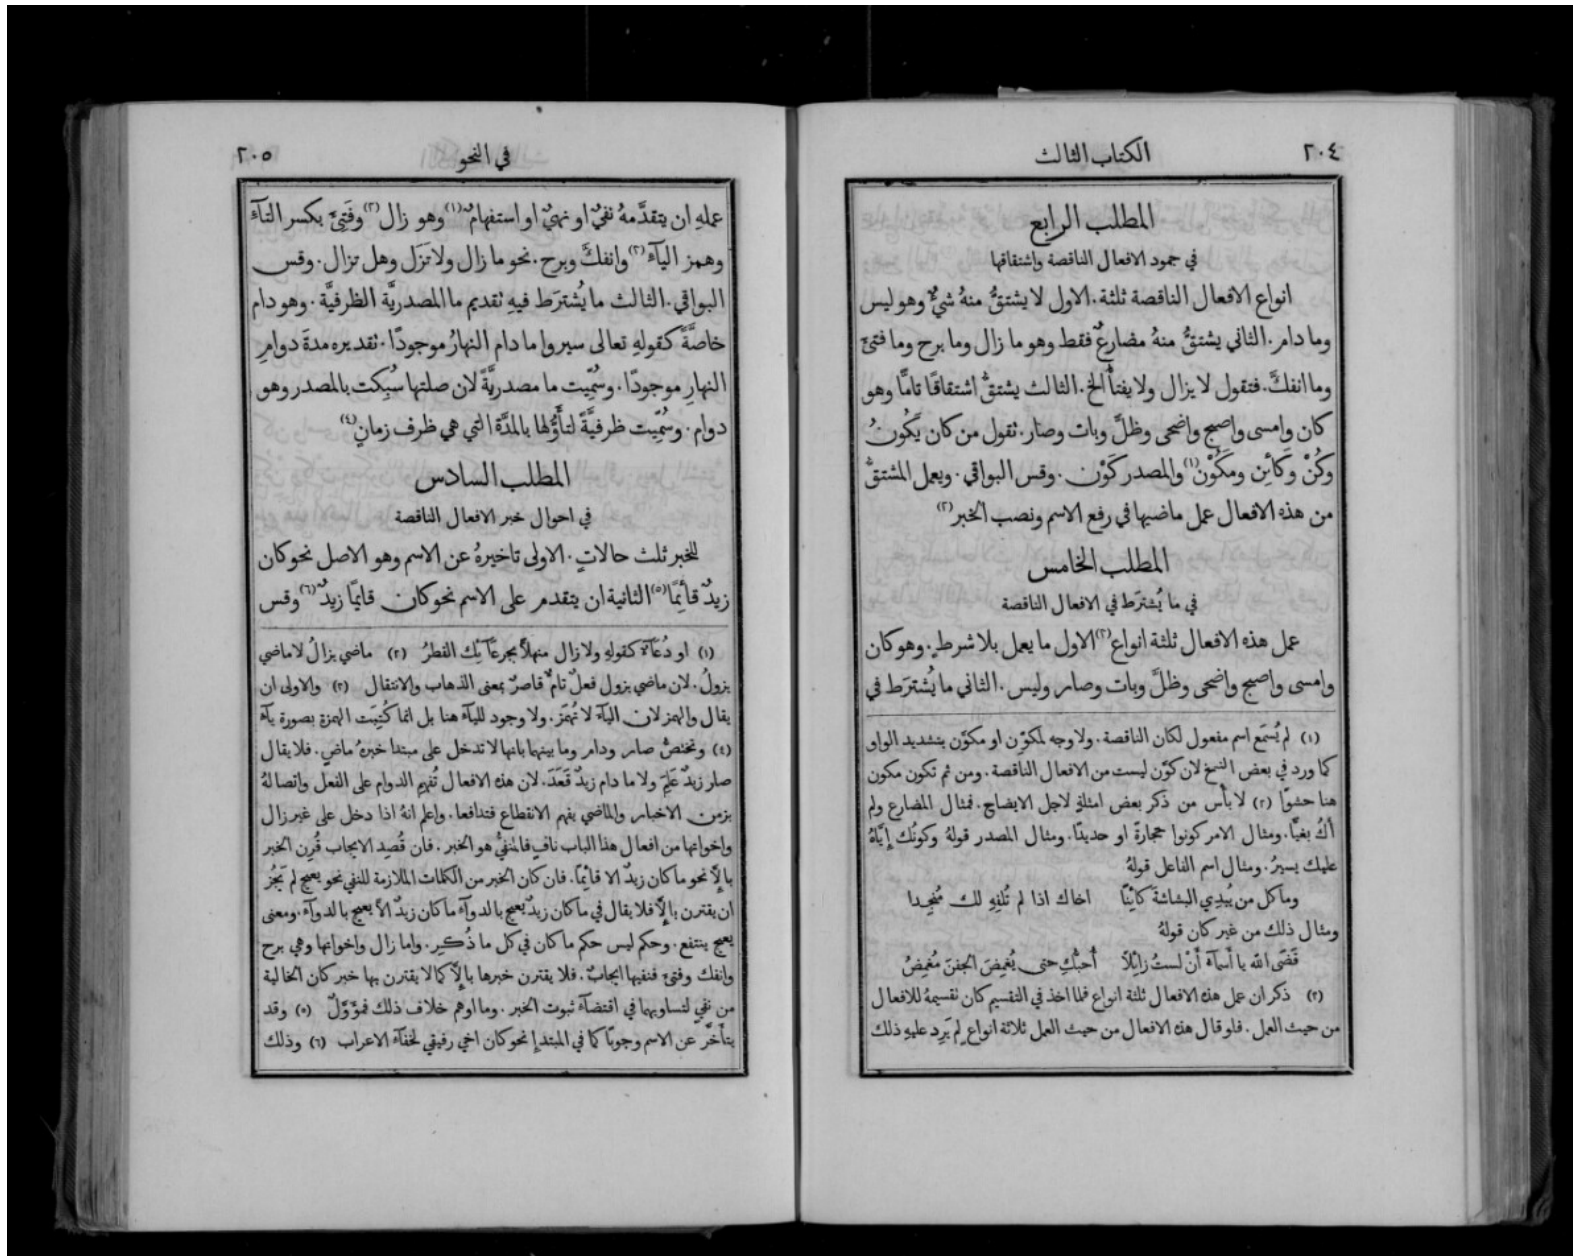 ٢٠٤
الكتاب الثالث
المطلب الرابع
في جمود الافعال الناقصة واشتقاقها
انواع الافعال الناقصة ثلثة. الاول لا يشتقُّ منهُ شيءٌ وهو ليس
وما دام. الثاني يشتقُّ منهُ مضارعٌ فقط وهو ما زال وما برح وما فتئَ
وما انفكَّ. فتقول لا يزال ولا يفتأُ الخ. الثالث يشتقُّ اشتقاقًا تامًّا وهو
كان وامسى واصبح واضحى وظلَّ وبات وصار. تقول من كان يَكُونُ
وكُنْ وكَائِن ومَكُوْن (١) والمصدر كَوْن. وقس البواقي. ويعمل المشتقُّ
من هذه الافعال عمل ماضيها في رفع الاسم ونصب الخبر (٢)
المطلب الخامس
في ما يُشترَط في الافعال الناقصة
عمل هذه الافعال ثلثة انواع (٣) الاول ما يعمل بلا شرطٍ. وهو كان
وامسى واصبح واضحى وظلَّ وبات وصار وليس. الثاني ما يُشترَط في
(١) لم يُسمَع اسم مفعول لكان الناقصة. ولا وجه لمكوِّن او مكوَّن بتشديد الواو
كما ورد في بعض النسخ لان كوّن ليست من الافعال الناقصة. ومن ثم تكون مكون
هنا حشوًا (٢) لا بأس من ذكر بعض امثلةٍ لاجل الايضاح. فمثال المضارع ولم
أكُ بغيًّا. ومثال الامر كونوا حجارةً او حديدًا. ومثال المصدر قولهُ وكونُك إيَّاهُ
عليك يسيرُ. ومثال اسم الفاعل قولهُ
وما كل من يُبدِي البشاشةَ كائِنًا اخاك اذا لم تُلفِهِ لك مُنجِدا
ومثال ذلك من غير كان قولهُ
قَضَى الله يا أَسمآءُ أَنْ لستُ زائِلًا أُحبُّكِ حتى يُغمِضَ الجفنَ مُغمِضُ
(٣) ذكر ان عمل هذه الافعال ثلثة انواع فلما اخذ في التقسيم كان تقسيمهُ للافعال
من حيث العمل. فلو قال هذه الافعال من حيث العمل ثلاثة انواع لم يَرِد عليهِ ذلك
في النحو
٢٠٥
عملهِ ان يتقدَّمهُ نفيٌ او نهيٌ او استفهامٌ (١) وهو زال (٢) وفَتِئَ بكسر التآء
وهمز اليآء (٣) وانفكَّ وبرح. نحو ما زال ولا تَزَل وهل تزال. وقس
البواقي. الثالث ما يُشترَط فيهِ تقديم ما المصدريَّة الظرفيَّة. وهو دام
خاصَّةً كقولهِ تعالى سيروا ما دام النهارُ موجودًا. تقديره مدةَ دوامِ
النهارِ موجودًا. وسُمِّيت ما مصدريَّةً لان صلتها سُبِكت بالمصدر وهو
دوام. وسُمِّيت ظرفيَّةً لتأَوُّلها بالمدَّة التي هي ظرف زمانٍ (٤)
المطلب السادس
في احوال خبر الافعال الناقصة
للخبر ثلث حالاتٍ. الاولى تاخيرهُ عن الاسم وهو الاصل نحو كان
زيدٌ قائِمًا (٥) الثانية ان يتقدم على الاسم نحو كان قايمًا زيدٌ (٦) وقس
(١) او دُعآءٌ كقولهِ ولا زال منهلًّا بجرعآئِك القطرُ (٢) ماضي يزالُ لا ماضي
يزولُ. لان ماضي يزول فعلٌ تامٌّ قاصرٌ بمعنى الذهاب والانتقال (٣) والاولى ان
يقال والهمز لان اليآء لا تُهمَز. ولا وجود لليآء هنا بل انما كُتِبَت الهمزة بصورة يآء
(٤) وتختصُّ صار ودام وما بينهما بانها لا تدخل على مبتدا خبرهُ ماضٍ. فلا يقال
صار زيدٌ عَلِمَ ولا ما دام زيدٌ قَعَدَ. لان هذه الافعال تُفهِم الدوام على الفعل واتصالهُ
بزمن الاخبار والماضي يفهم الانقطاع فتدافعا. واعلم انهُ اذا دخل على غير زال
واخواتها من افعال هذا الباب نافٍ فالمنفيُّ هو الخبر. فان قُصِد الايجاب قُرِن الخبر
بالَّا نحو ما كان زيدٌ الا قائِمًا. فان كان الخبر من الكلمات الملازمة للنفي نحو يعيج لم يَجُز
ان يقترن بالَّا فلا يقال في ما كان زيدٌ يعيج بالدوآء ما كان زيدٌ الَّا يعيج بالدوآء. ومعنى
يعيج ينتفع. وحكم ليس حكم ما كان في كل ما ذُكِر. واما زال واخواتها وهي برح
وانفك وفتئ فنفيها ايجابٌ. فلا يقترن خبرها بالَّا كما لا يقترن بها خبر كان الخالية
من نفيٍ لتساويهما في اقتضآء ثبوت الخبر. وما اوهم خلاف ذلك فمؤَوَّلٌ (٥) وقد
يتأخَّر عن الاسم وجوبًا كما في المبتدإِ نحو كان اخي رفيقي لخفآء الاعراب (٦) وذلك